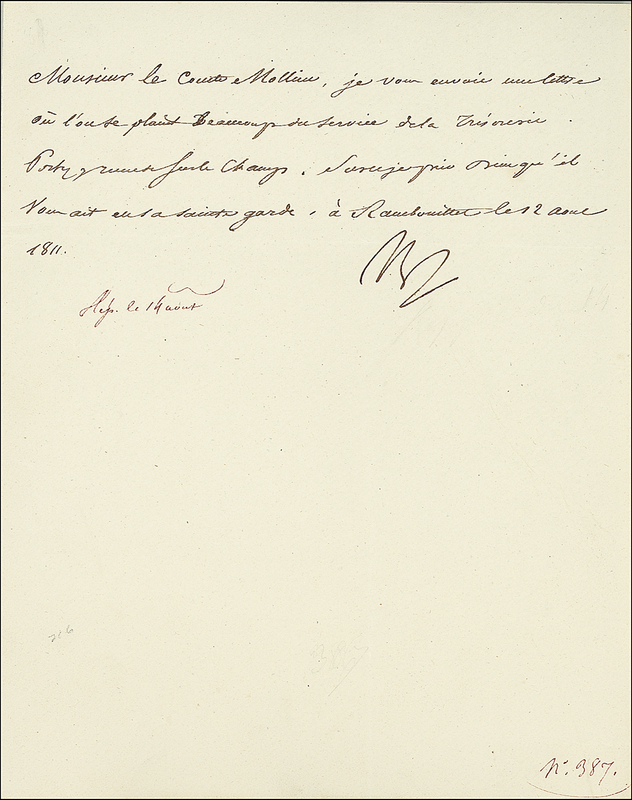 Monsieur le Comte Mollien, je vous envoie une lettre
où l'on se plaint Beaucoup du service de la Trésorerie.
Portez y remede sur le Champ. Sur ce je prie Dieu qu'il
Vous ait en sa sainte garde. à Rambouillet le 12 aout
1811.
Np
Rep. le 14 aout
216
N.º 387.